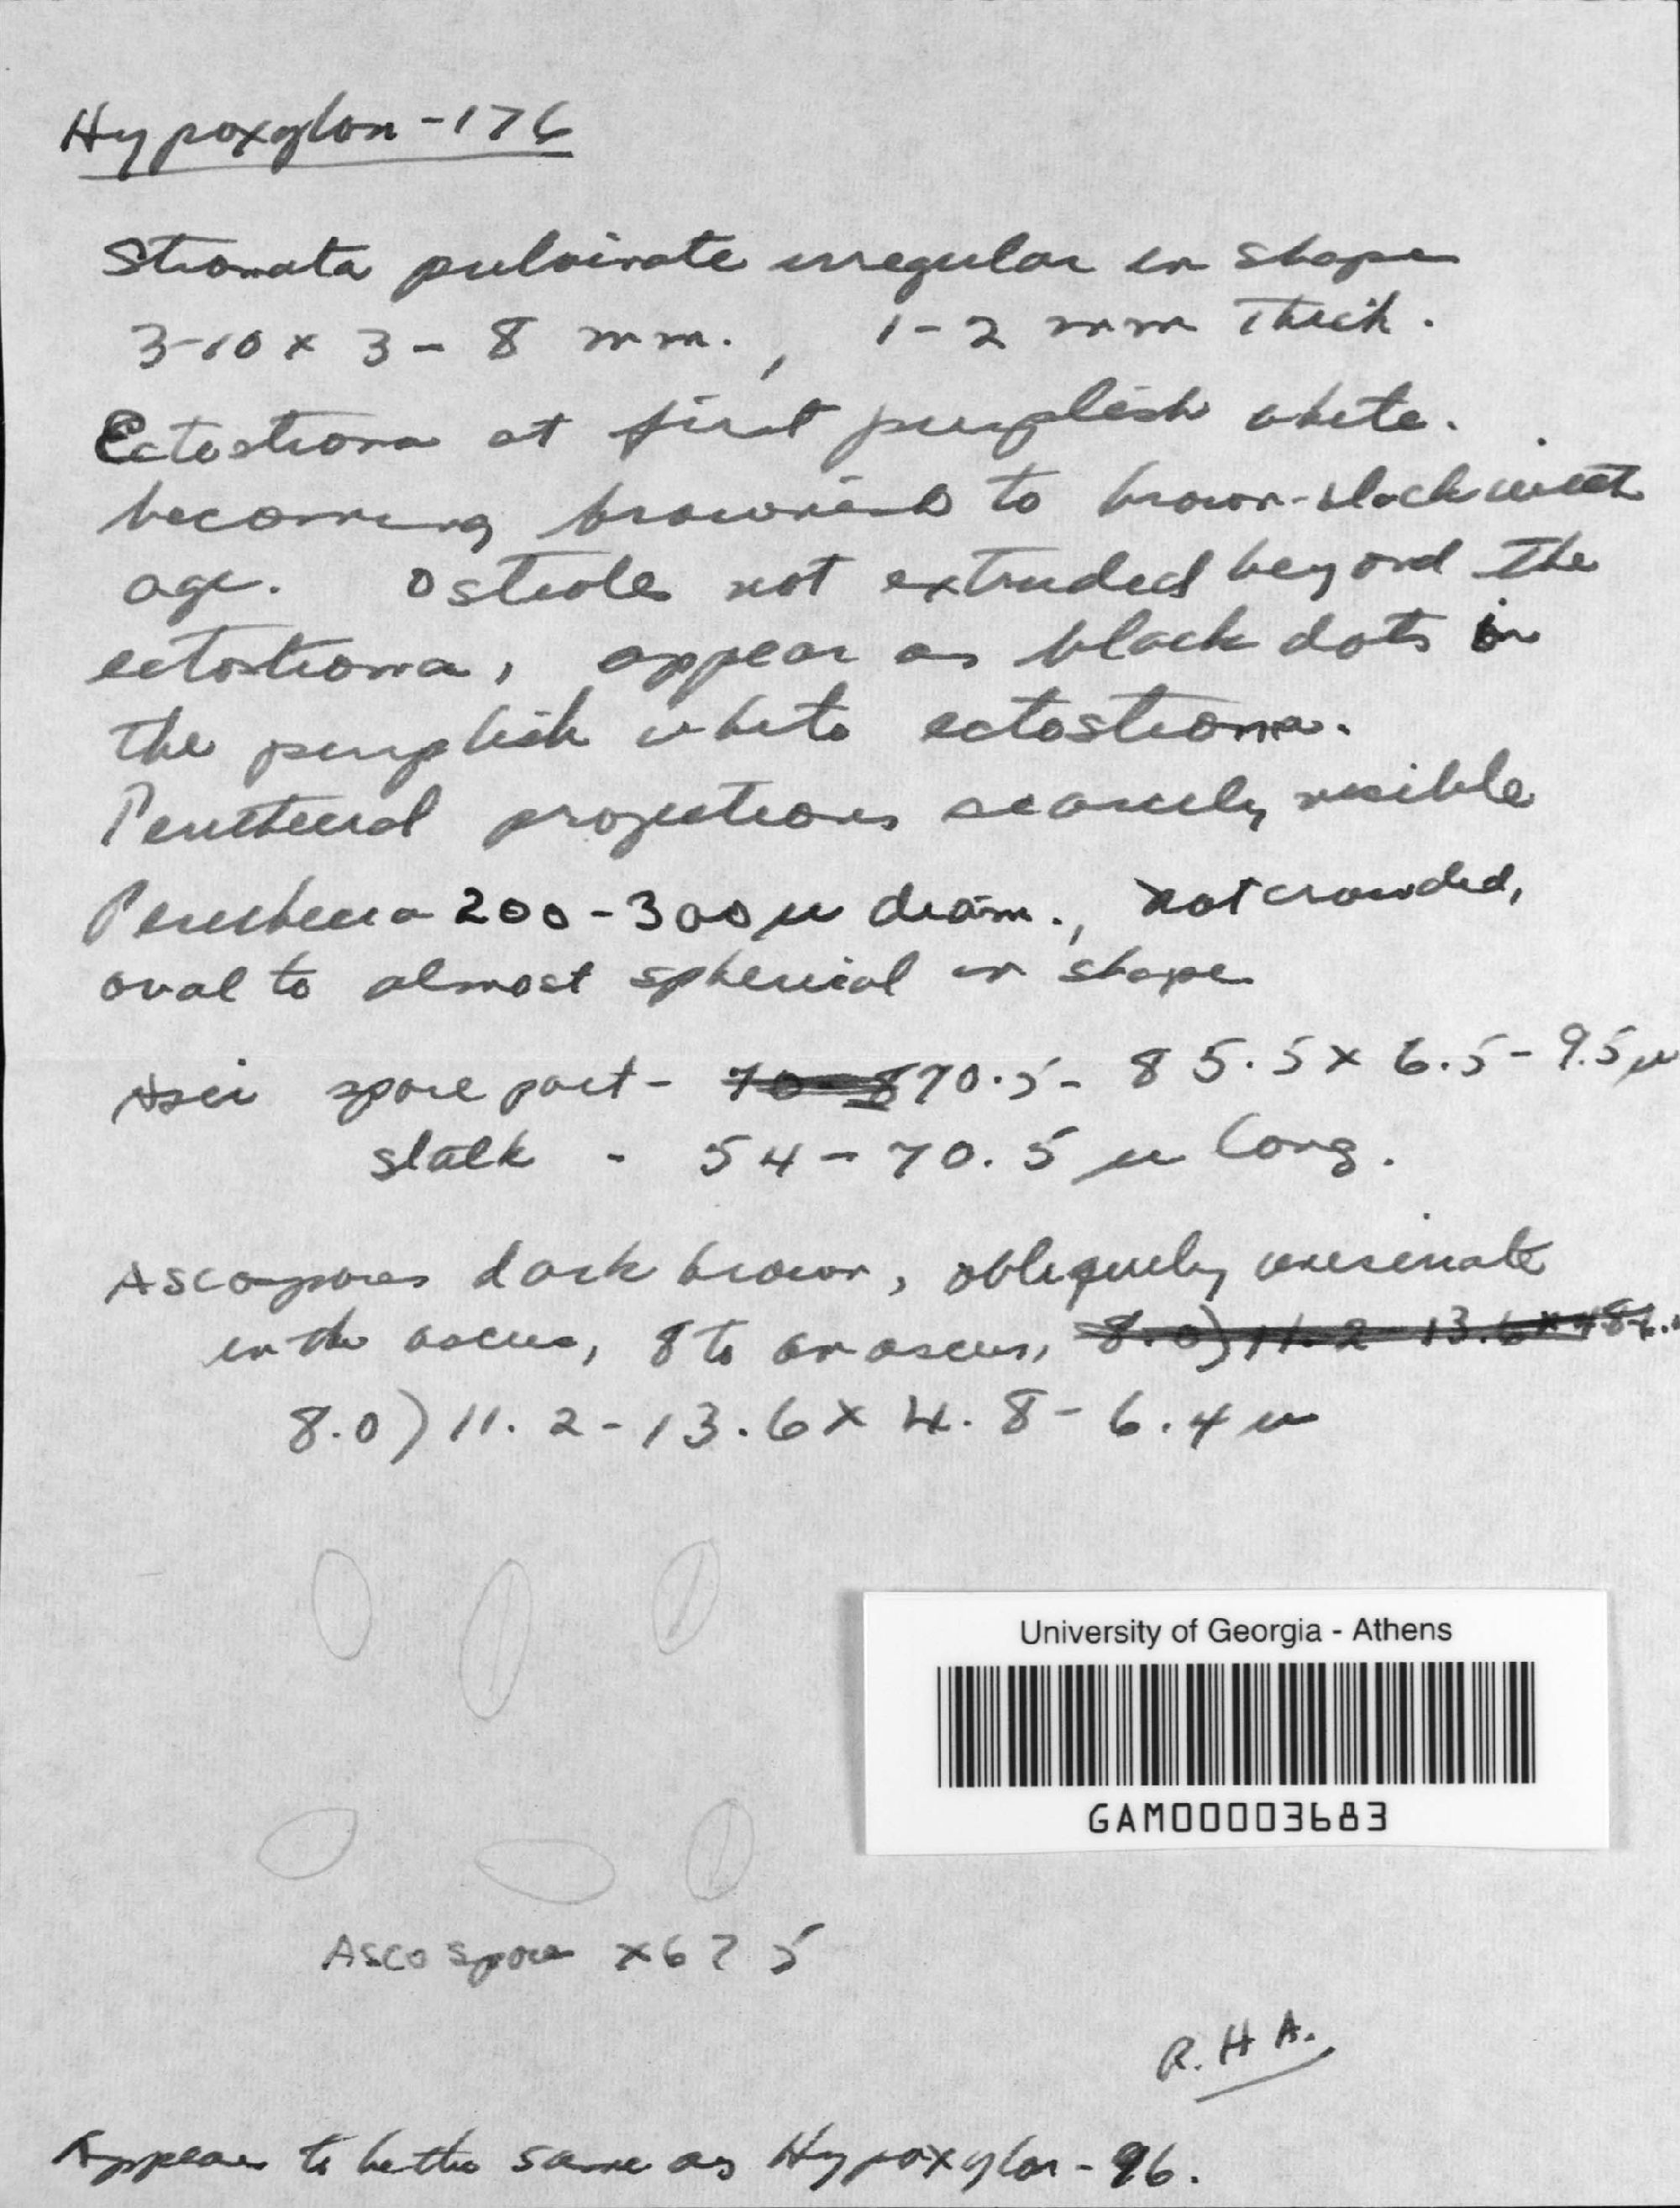 Hypoxylon - 176
Stromata pulvinate irregular in shape
3-10 x 3 - 8 mm. , 1-2 mm Thick.
Ectostroma at first purplish white.
becoming brownish to brown-black with
age. Ostiole not extruded beyond the
ectostroma, appear as black dots in
the purplish white ectostroma.
Perithecial projections scarcely visible
Perithecia 200-300 µ diam., not crowded,
oval to almost spherical in shape
Asci spore part - 70-8 70.5 - 85.5 x 6.5 - 9.5 µ
stalk - 54 - 70.5 µ long.
Ascospores dark brown, obliquely uniseriate
in the ascus, 8 to an ascus, 8.0) 11.2 - 13.6 x
8.0) 11.2 - 13.6 x 4.8 - 6.4 µ
University of Georgia - Athens
GAM00003683
Ascospore x675
R. H A.
Appears to be the same as Hypoxylon - 96.